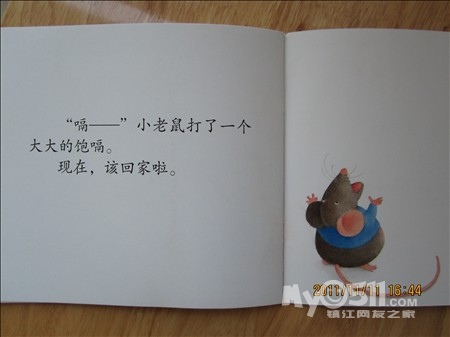 “嗝——”小老鼠打了一个
大大的饱嗝。
现在，该回家啦。
2011/11/11 16:44
My0511.com
镇江网友之家